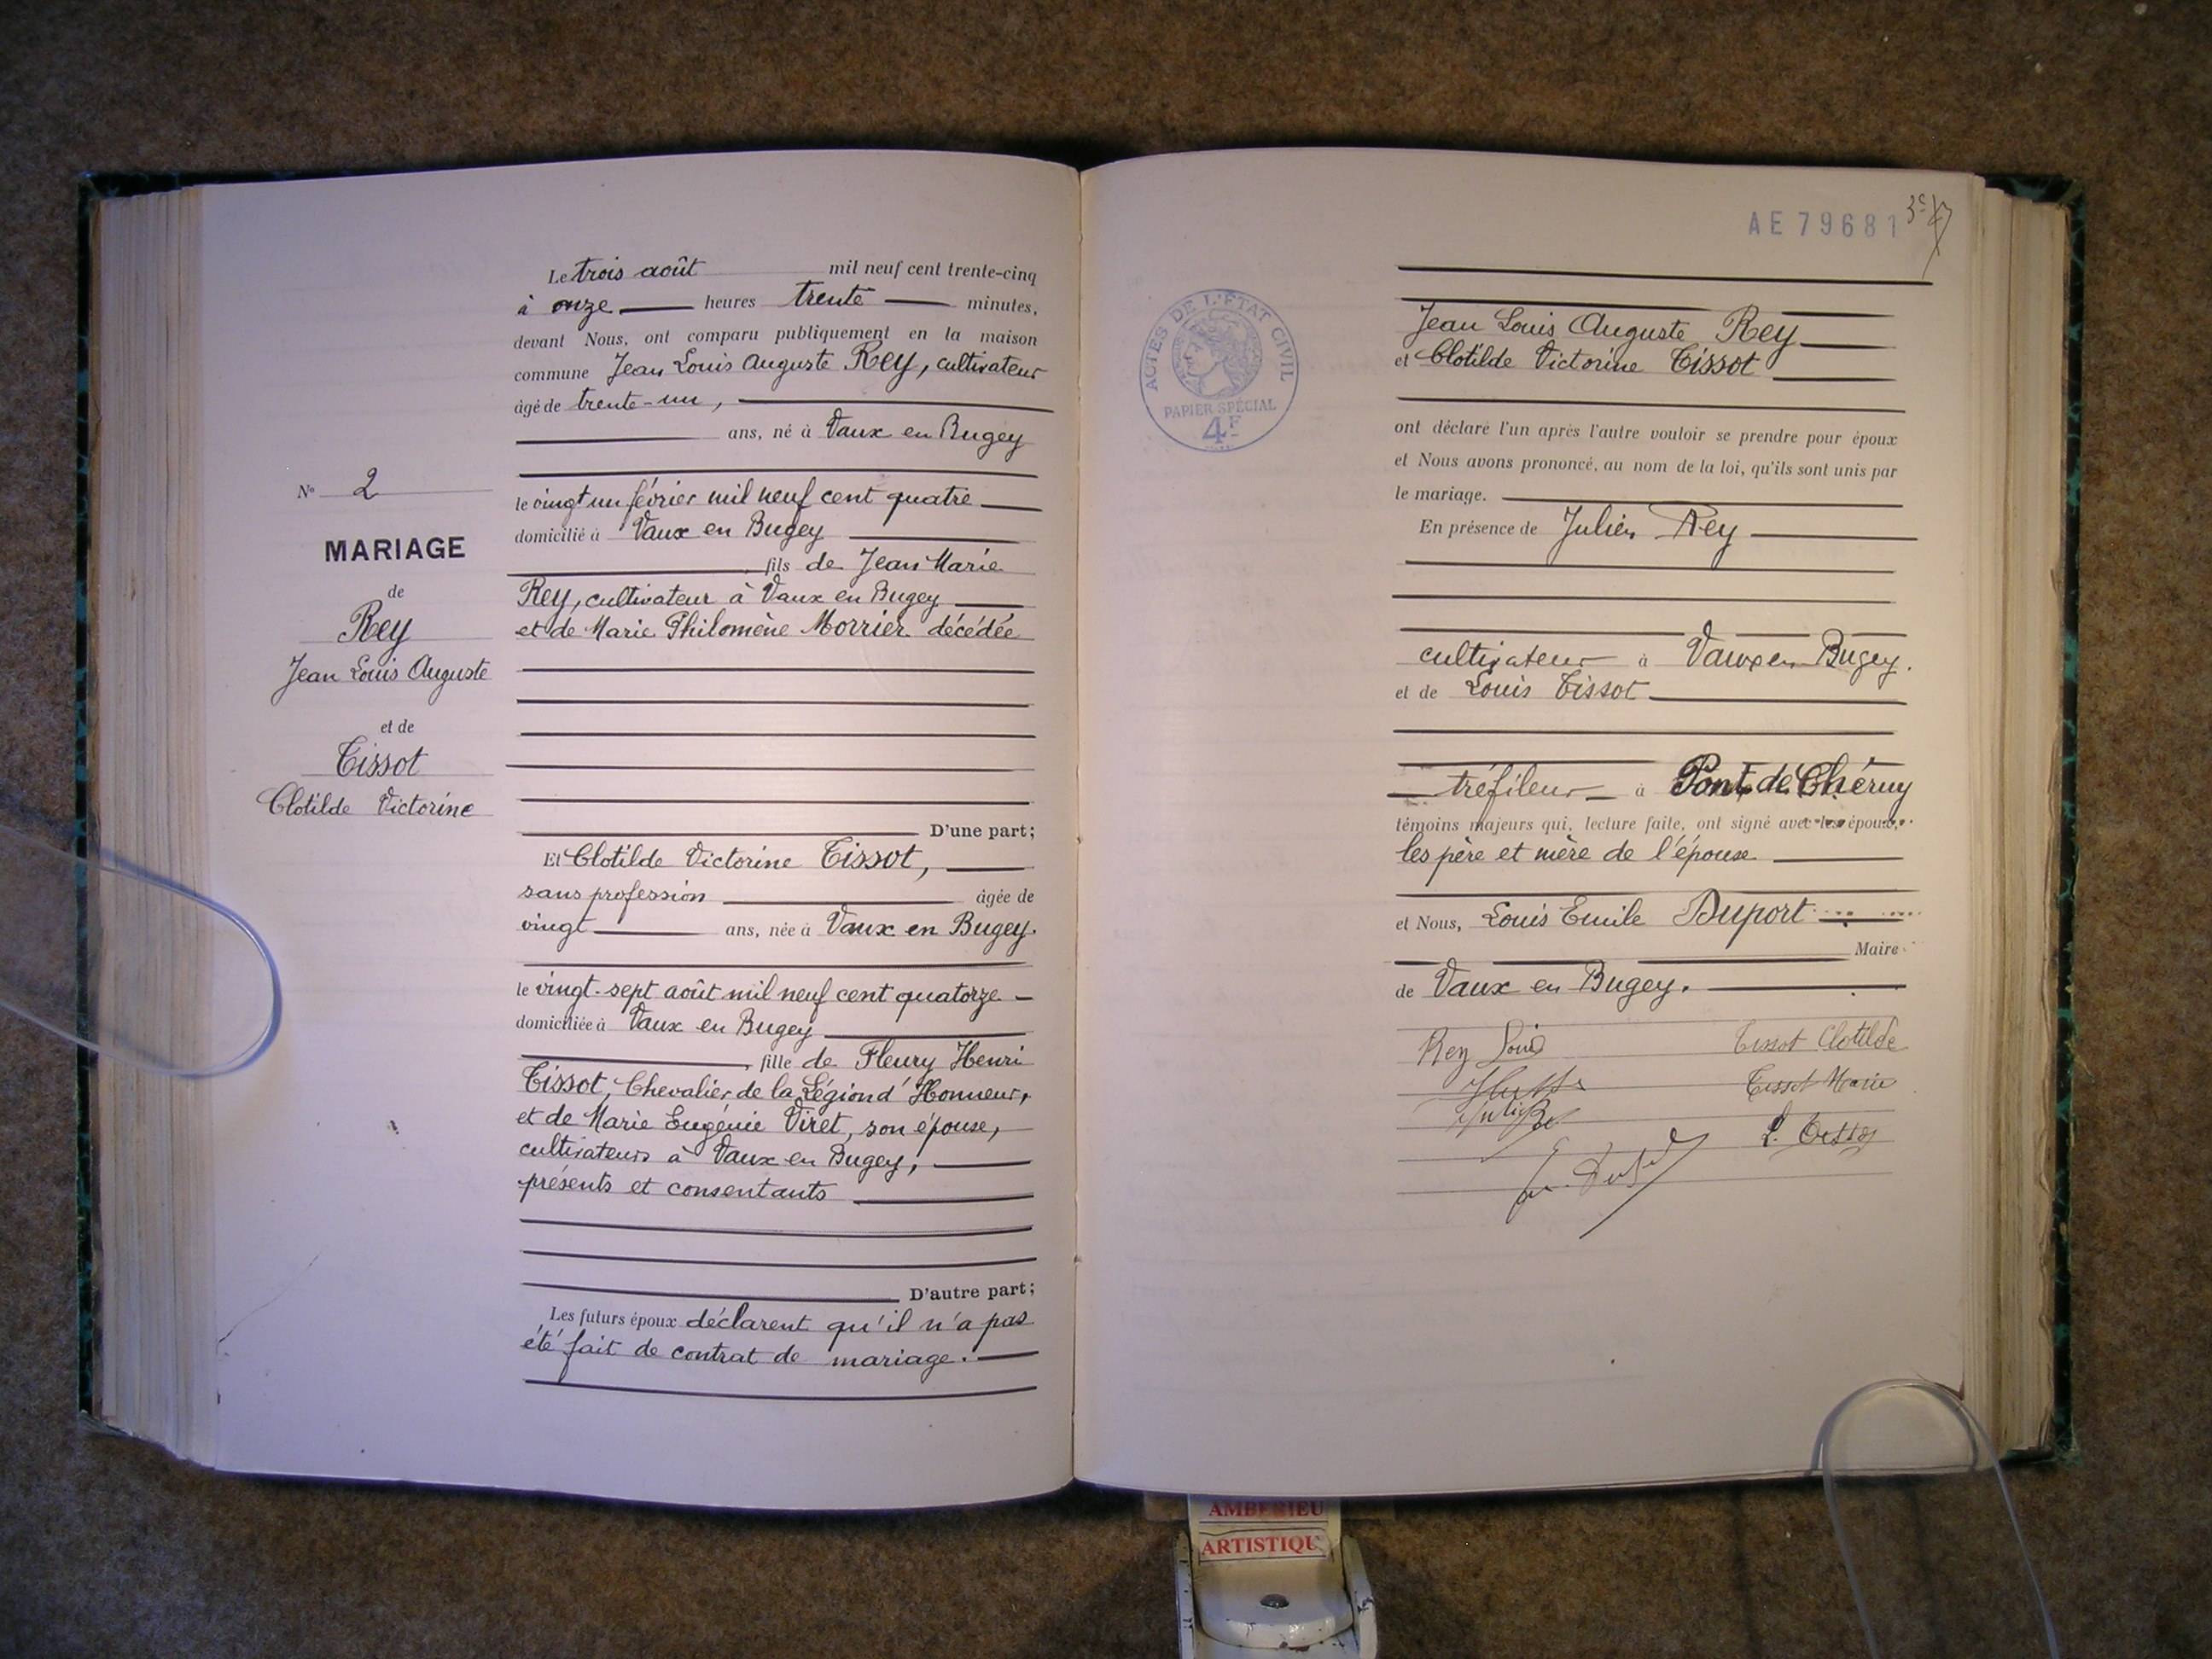 Nº 2
MARIAGE
de
Rey
Jean Louis Auguste
et de
Tissot
Clotilde Victorine
Le trois août mil neuf cent trente-cinq
à onze heures trente minutes,
devant Nous, ont comparu publiquement en la maison
commune Jean Louis Auguste Rey, cultivateur
âgé de trente-un,
ans, né à Vaux en Bugey
le vingt un février mil neuf cent quatre
domicilié à Vaux en Bugey
, fils de Jean Marie
Rey, cultivateur à Vaux en Bugey
et de Marie Philomène Morrier décédée
D'une part;
Et Clotilde Victorine Tissot,
sans profession âgée de
vingt ans, née à Vaux en Bugey.
le vingt-sept août mil neuf cent quatorze
domiciliée à Vaux en Bugey
, fille de Fleury Henri
Tissot, Chevalier de la Légion d'Honneur,
et de Marie Eugénie Viret, son épouse,
cultivateurs à Vaux en Bugey,
présents et consentants
D'autre part;
Les futurs époux déclarent qu'il n'a pas
été fait de contrat de mariage.
AE79681
ACTES DE L'ÉTAT CIVIL
PAPIER SPÉCIAL
4F
Jean Louis Auguste Rey
et Clotilde Victorine Tissot
ont déclaré l'un après l'autre vouloir se prendre pour époux
et Nous avons prononcé, au nom de la loi, qu'ils sont unis par
le mariage.
En présence de Julien Rey
cultivateur à Vaux en Bugey.
et de Louis Tissot
tréfileur à Pont de Chéruy
témoins majeurs qui, lecture faite, ont signé avec les époux,
les père et mère de l'épouse
et Nous, Louis Emile Duport
Maire
de Vaux en Bugey.
Rey Louis Tissot Clotilde
Tissot Marie
L. Tissot
AMBERIEU
ARTISTIQU